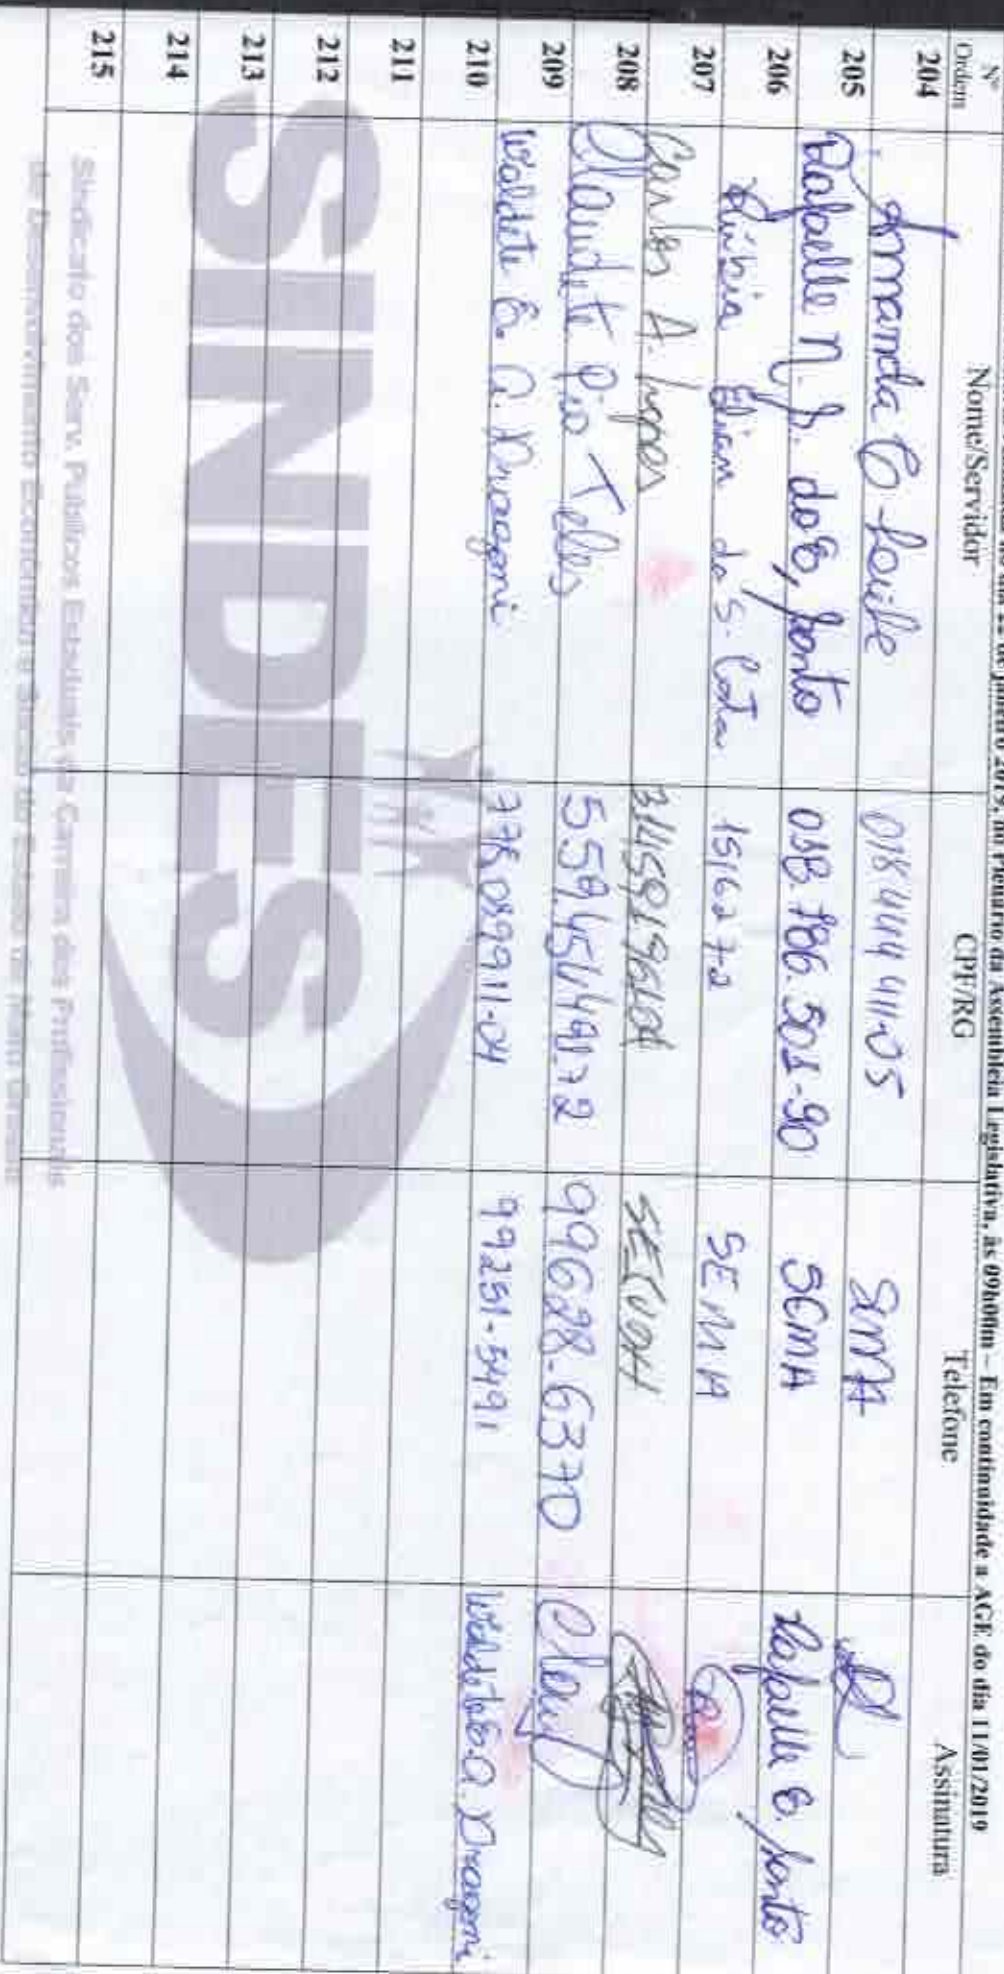 de janeiro/2019, no Plenário da Assembleia Legislativa, às 09h00m – Em continuidade a AGE do dia 11/01/2019
Nº Ordem Nome/Servidor CPF/RG Telefone Assinatura
204 Amanda C Leite SEMA
205 Rafaelle N. J. do E. Santo 018.786.501-90 SEMA Rafaelle E. Santo
206 Elian da S. Costa 1516272 SEMA
207 Carlos A. Lopes
208 Claudete Pio Telles 99628-6370
209 Waldete E. A. Dragoni 99251-5491 Waldete E. A. Dragoni
210
211
212
213
214
215
SINDES
Sindicato dos Serv. Públicos Estaduais na Carreira dos Profissionais
de Desenvolvimento Econômico e Social do Estado de Mato Grosso